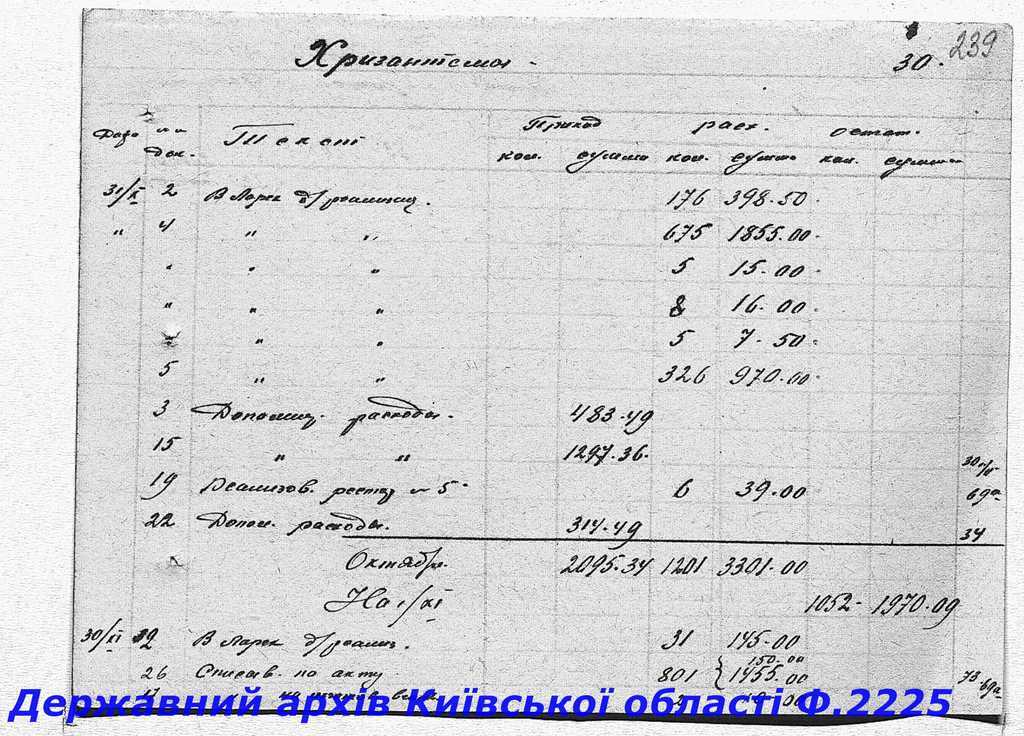 239
Хризантемы -
30.
Дата №№ док. Текст Приход расх. остат.
кол. сумма кол. сумма кол. сумма
31/X 2 В Ларек д/реализац. 176 398.50
" 4 " " 675 1855.00
" " " 5 15.00
" " " 8 16.00
" " " 5 7.50
5 " " 326 970.00
3 Дополнит. расходы. 483.49
15 " " 1297.36.
19 Реализов. реестр № 5 6 39.00
22 Допол. расходы. 314.49 34
Октябрь. 2095.34 1201 3301.00
На 1/XI 1052- 1970.09
30/XI В Ларек д/реализ. 31 145.00
150.00
26 Списыв. по акту 801 1455.00
Державний архів Київської області Ф.2225